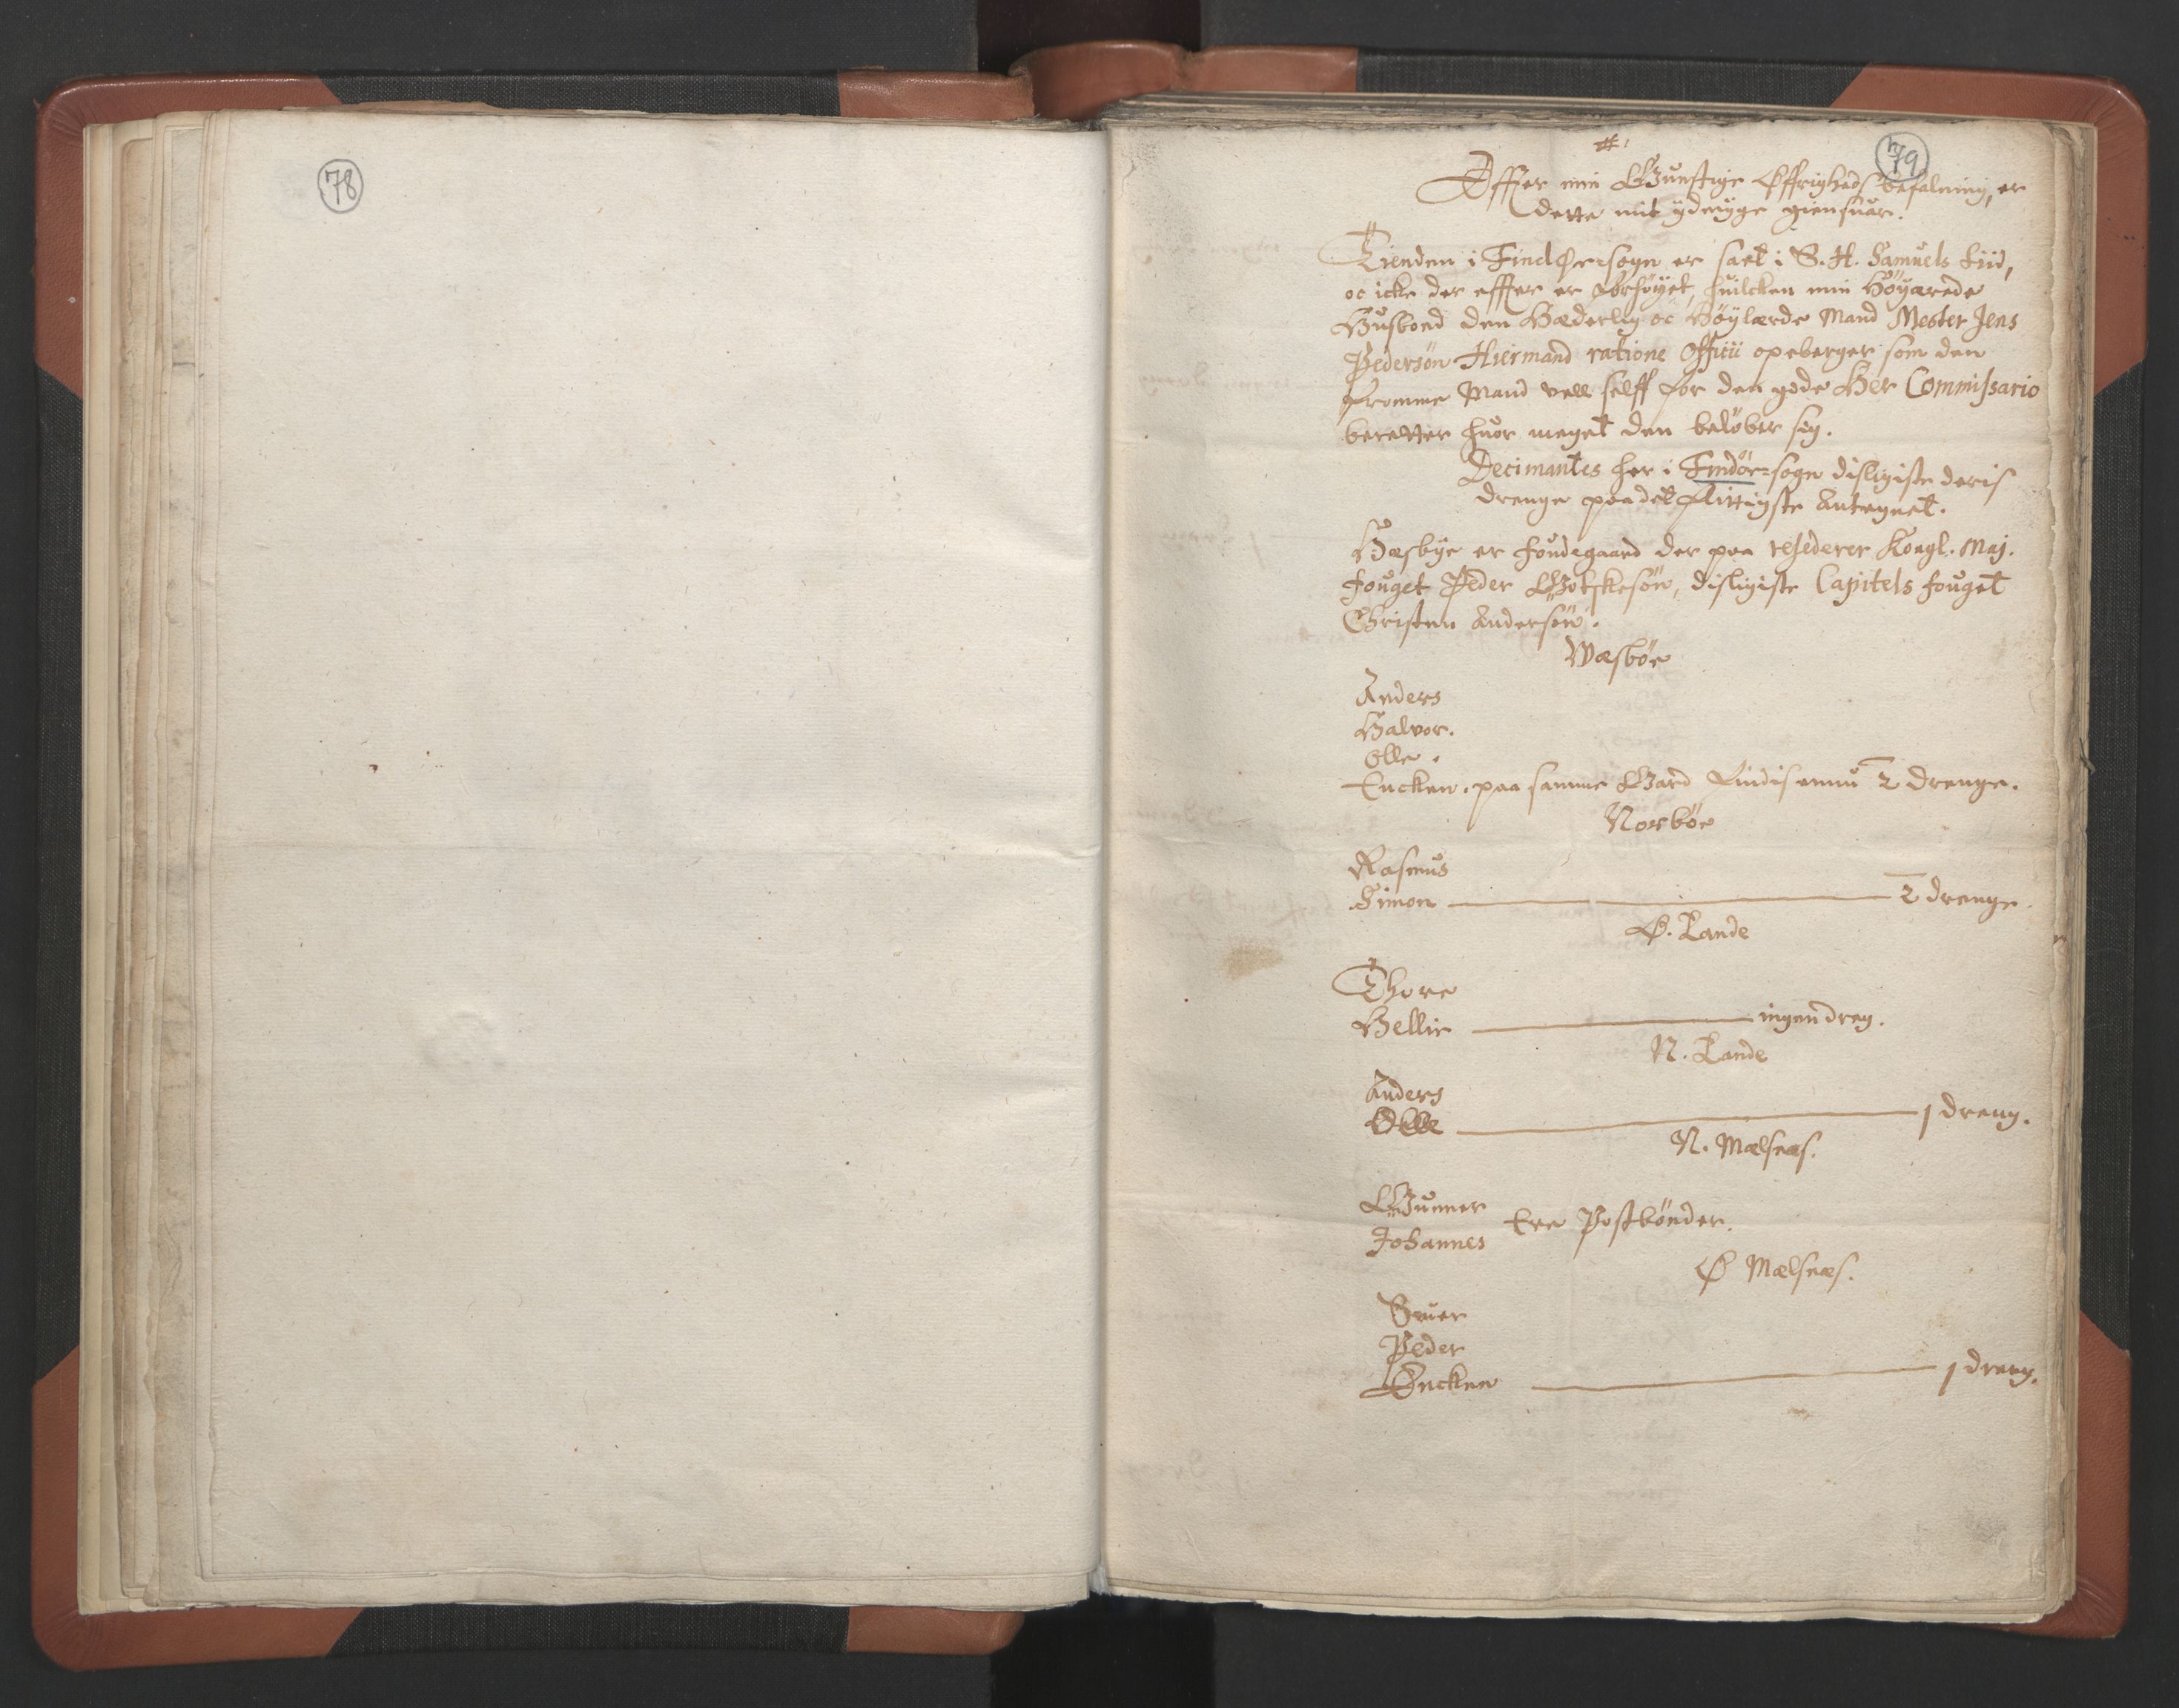 78
79
Effter min Gunstige Øffrigheds befalning, er
dette mit ydmyge giensuar.
Tienden i Findø-sogn er sat i S. H. Samuels tiid,
oc icke der effter er forhöyet, huilcken min Höyærede
Husbond den Hæderlig oc Höylærde Mand Mester Jens
Pedersön Hiermand ratione Officii opeberger som den
fromme Mand vell selff for den gode Her Commissario
beretter huor meget den belöber sig.
Decimantes her i Findøe-sogn disligiste deris
drenge paa det flittigste Antegnet.
Hæsbye er foudegaard der paa resederer Kongl. Maj.
fouget Peder Götskesön, disligiste Capitels fouget
Christen Andersön.
Wæsböe
Anders
Halvor.
Olle.
Encken. paa samme Gard findis ennu 2 drenge.
Norböe
Rasmus
Simon 2 drenge.
Ø. Lande
Thore
Hellie ingen dreg.
N. Lande
Anders
Olle 1 dreng.
N. Mælsnæs.
Gunner
Johannes Ere Postbönder.
Ø Mælsnæs.
Siuer
Peder
Encken 1 dreng.